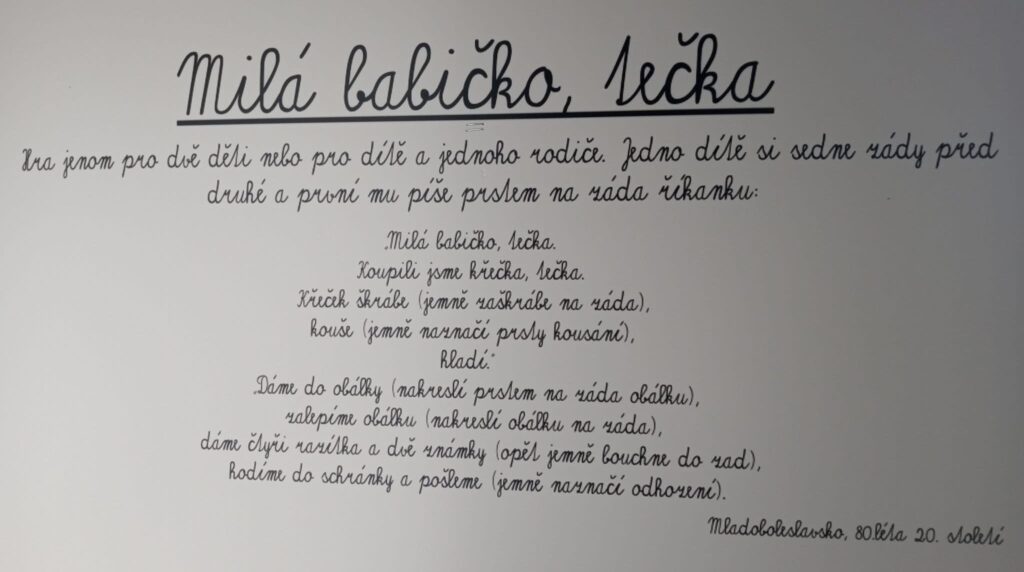 Milá babičko, tečka
Hra jenom pro dvě děti nebo pro dítě a jednoho rodiče. Jedno dítě si sedne zády před
druhé a první mu píše prstem na záda říkanku:
„Milá babičko, tečka.
Koupili jsme křečka, tečka.
Křeček škrábe (jemně zaškrábe na záda),
kouše (jemně naznačí prsty kousání),
hladí.“
„Dáme do obálky (nakreslí prstem na záda obálku),
zalepíme obálku (nakreslí obálku na záda),
dáme čtyři razítka a dvě známky (opět jemně bouchne do zad),
hodíme do schránky a pošleme (jemně naznačí odhození).
Mladoboleslavsko, 80.léta 20. století